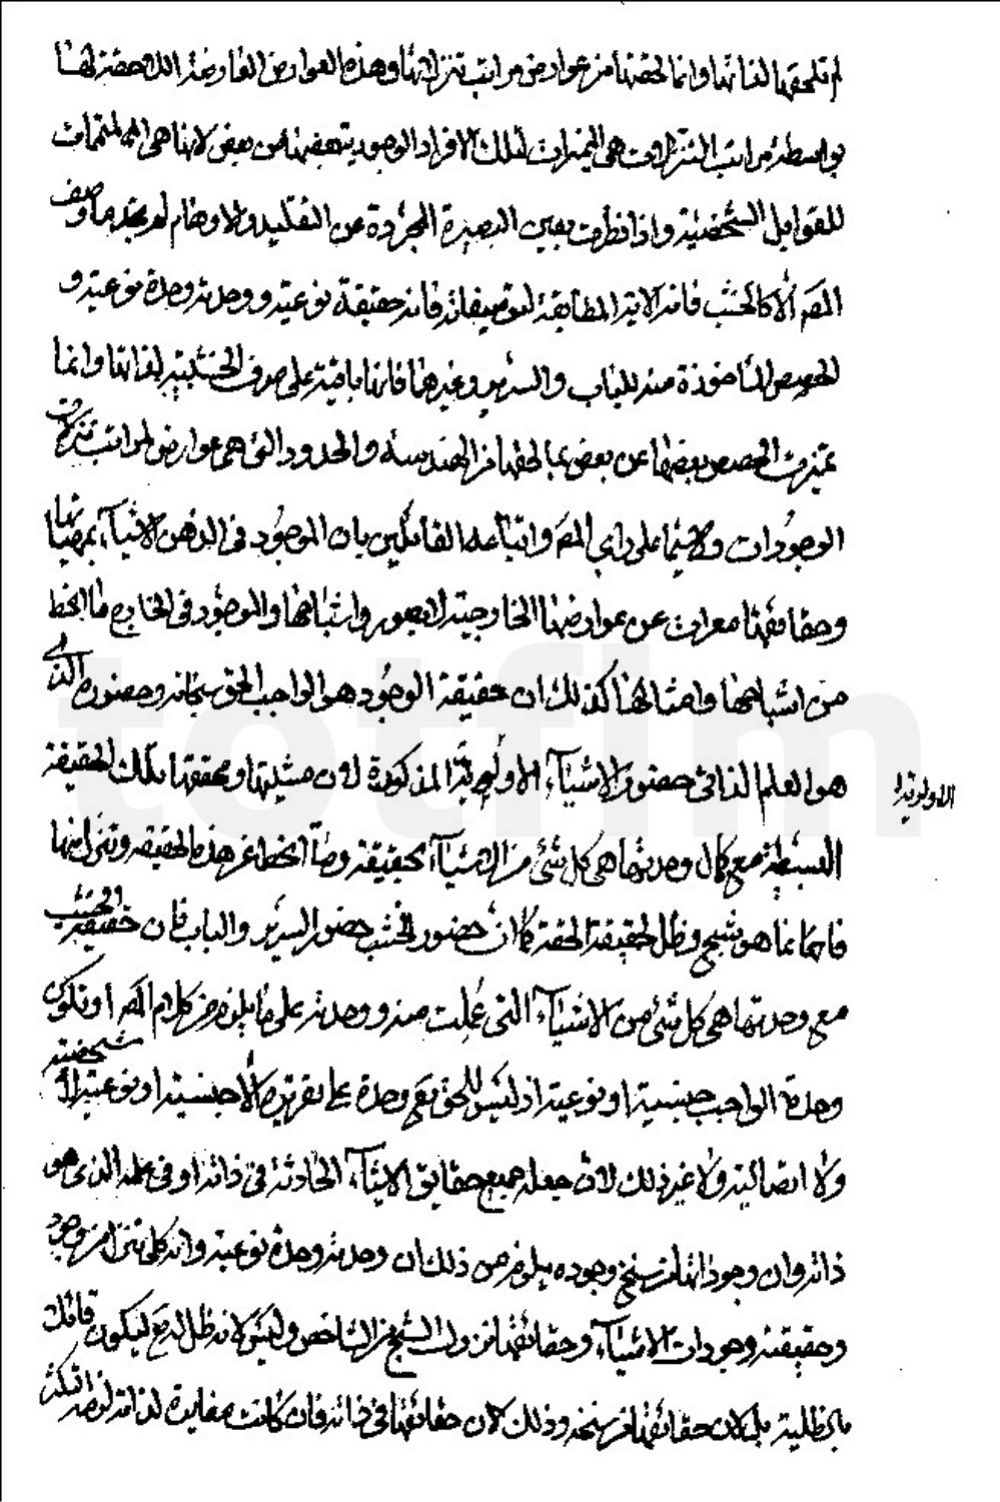 لم تلحقها لذاتها وانما لحقتها من عوارض مراتب تنزلاتها وهذه العوارض العارضة اللاحقة لها
بواسطة مراتب التنزلات هي المميزات لتلك الافراد الوجودية بعضها من بعض لانها هي المتممات
للقوابل الشخصية واذا نظرت بعين البصيرة المجردة عن التقليد والاوهام لم تجد ما وصف
المص الا كالخشب فانه الاية المطابقة لتوصيفاته فانه حقيقة نوعية ووحدته وحدة نوعية و
الحصص المأخوذة منه للباب والسرير وغيرهما فانها باقية على صرف الخشبية لذاتها وانما
تميزت الحصص بعضها عن بعض بما لحقها من الهندسة والحدود التي هي عوارض لمراتب تنزلات
الوجودات ولا سيما على راي المص واتباعه القائلين بان الموجود في الذهن الاشياء بمهياتها
وحقائقها معرات عن عوارضها الخارجية لا بصور واشباهها والموجود في الخارج ما انحط
من اشباهها وامثالها كذلك ان حقيقة الوجود هو الواجب الحق سبحانه وحضوره الذي
هو العلم الذاتي حضور الاشياء الاولوية المذكورة لان مشيئتها ومحققها بتلك الحقيقة
الاولوية
البسيطة مع كمال وحدتها هي كل شئ من الاشياء بحقيقته وما انحط عن هذه الحقيقة وتنزل منها
فانما هو شبح وظل للحقيقة الحقة كما ان حضور الخشب حضور السرير والباب فان حقيقة الخشب
مع وحدتها هي كل شئ من الاشياء التي عملت منه ووحدته على ما يلزم من كلام المص او تكون
وحدة الواجب جنسية او نوعية اذ ليس للحق تع وحدة بما يقرره الا جنسية او نوعية لا شخصية
ولا اتصالية ولا غير ذلك لان جعله جميع حقايق الاشياء الحادثة في ذاته او في علمه الذي هو
ذاته وان وجوداتها من سنخ وجوده يلزم من ذلك ان وحدته وحدة نوعية وانه كلي تنزل من وجوده
وحقيقته وجودات الاشياء وحقائقها نزول الشبح من الشاخص وليس لانه ظل له تع ليكون قائلا
بالظلية بل لان حقائقها من سنخه وذلك لان حقائقها في ذاته فان كانت مغايرة لذاته لزمه التكثر